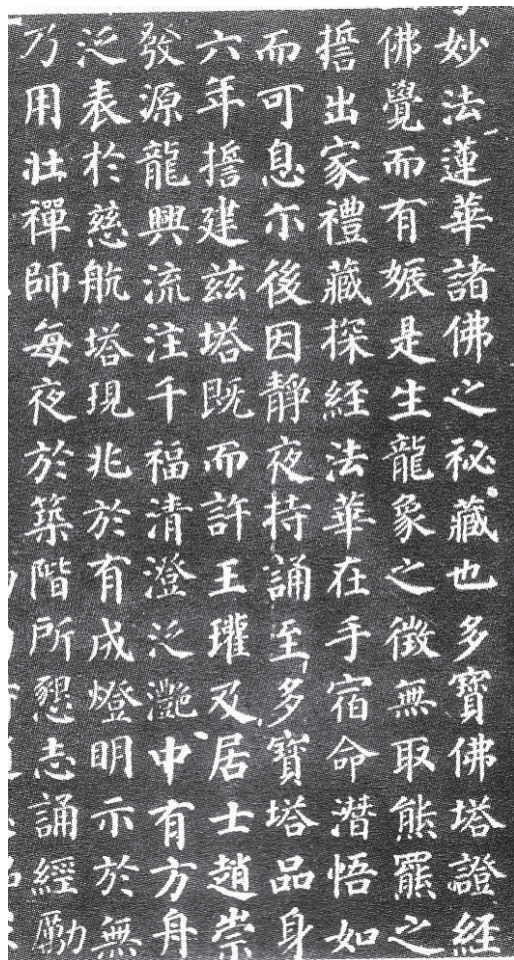 妙法蓮華諸佛之祕藏也多寶佛塔證經
佛覺而有娠是生龍象之徵無取熊羆之
誓出家禮藏探經法華在手宿命潛悟如
而可息尒後因靜夜持誦至多寶塔品身
六年誓建茲塔既而許王瓘及居士趙崇
發源龍興流注千福清澄泛灩中有方舟
泛表於慈航塔現兆於有成燈明示於無
乃用壯禪師每夜於築階所懇志誦經勵